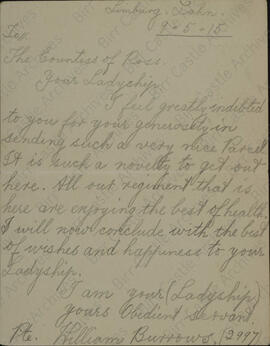 Limburg. Lahn.
9-5-15
To.
The Countess of Ross.
Your Ladyship.
I feel greatly indebted
to you for your generosity in
sending such a very nice Parcel
It is such a novelty to get out
here. All our regiment that is
here are enjoying the best of health.
I will now conclude with the best
of wishes and happiness to your
Ladyship.
I am your (Ladyship)
yours Obidient Servant.
Pte. William Burrows. (2997)